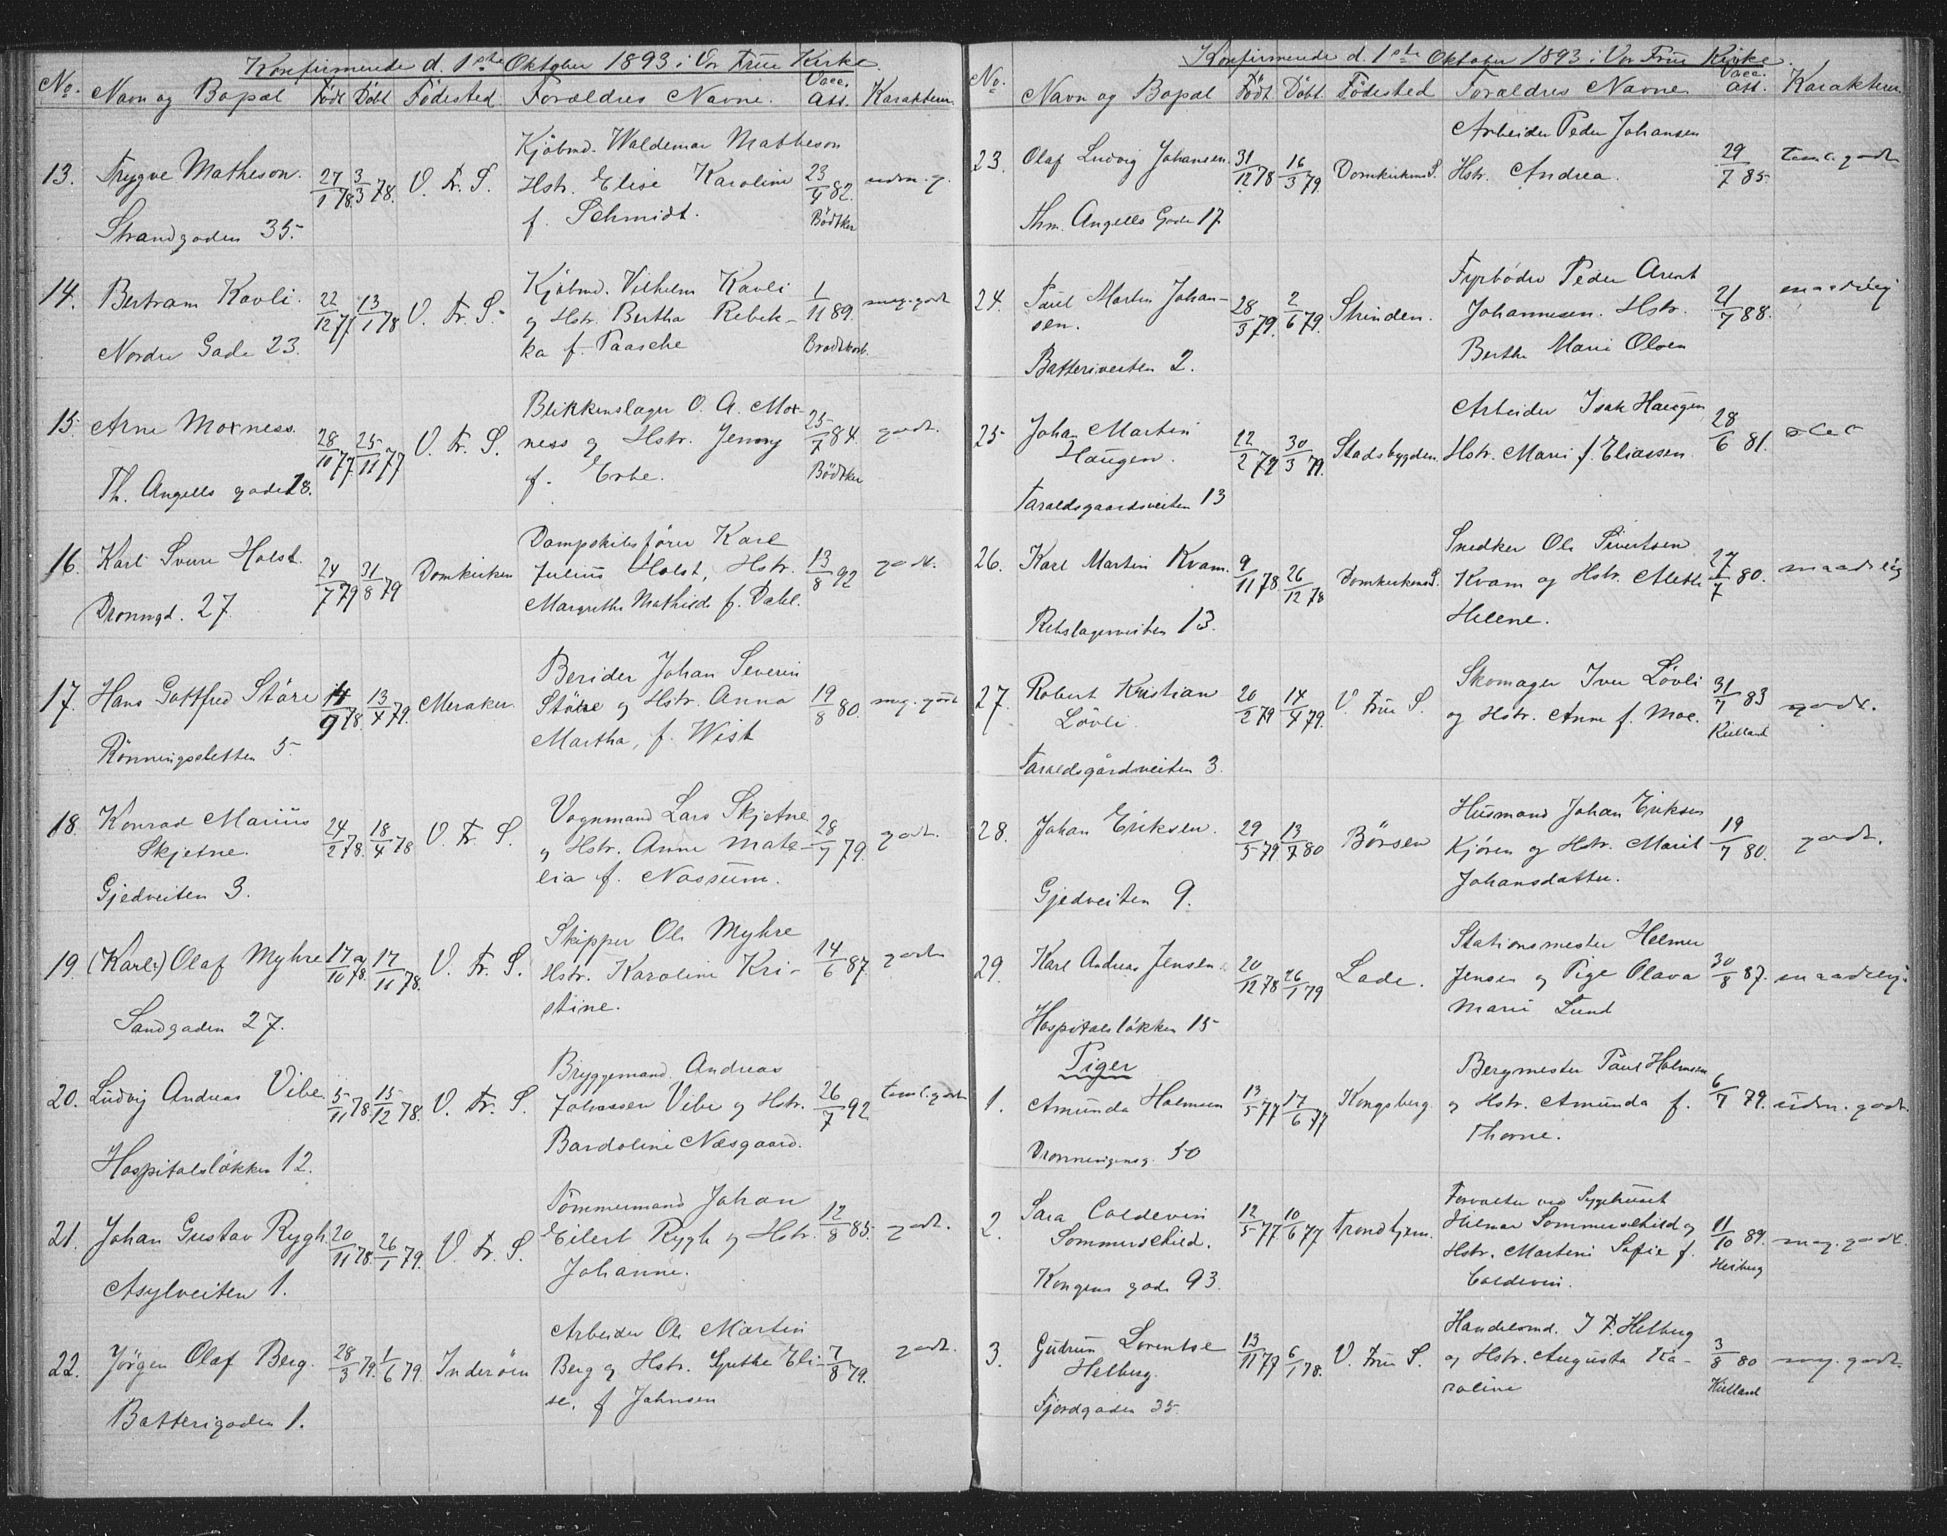 Konfirmerede d. 1ste Oktober 1893 i Vor Frue Kirke
No. Navn og Bopæl Født Døbt Fødested Forældres Navne. Vacc. Att. Karakteren
13. Trygve Matheson. 27/1 78. 3/3 78. V. Fr. S. Kjøbmd. Waldemar Matheson
Hstr. Elise Karoline 23/9 82. udm. g.
f. Schmidt. Bödtker
Strandgaden 35.
14. Bertram Kavli. 22/12 77 13/1 78 V. Fr. S. Kjøbmd. Vilhelm Kavli 1/11 89. meg. godt
og Hstr. Bertha Rebek-
ka f. Paasche
Nordre Gade 23.
15. Arne Moxness. 28/10 77 25/11 77 V. Fr. S. Blikkenslager O. A. Mox-
ness og Hstr. Jenny 25/7 84. godt.
f. Erbe. Bödtker
Th. Angells gade 18.
16. Karl Sverre Holst. 24/7 79 31/8 79 Domkirken Dampskibsfører Karl
Julius Holst, Hstr. 13/8 92 godt.
Margrethe Mathilde f. Dahl.
Dronngd. 27.
17. Hans Gottfred Störe 14/9 78. 13/4 79. Meraker. Berider Johan Severin
Störe og Hstr. Anna 19/8 80. mg. godt
Martha, f. Wist
Rönningsletten 5
18. Konrad Marius 24/2 78. 18/4 78 V. Fr. S. Vognmand Lars Skjetne
Skjetne. og Hstr. Anne Mate- 28/7 79. godt.
lia f. Nossum.
Gjedveiten 3.
19. (Karl:) Olaf Myhre 17/10 78. 17/11 78. V. Fr. S. Skipper Ole Myhre
Hstr. Karoline Kri- 14/6 87. godt
stine.
Sandgaden 27.
20. Ludvig Andreas Vibe 5/11 78. 15/12 78. V. Fr. S. Bryggemand Andreas
Johansen Vibe og Hstr. 26/7 92 teml. godt
Bardoline Næsgaard.
Hospitalsløkken 12.
21. Johan Gustav Rygh 20/11 78. 26/1 79. V. Fr. S. Tømmermand Johan
Eilert Rygh og Hstr. 12/8 85. godt.
Johanne.
Asylveiten 1.
22. Jörgen Olaf Berg. 28/3 79. 1/6 79. Inderøen Arbeider Ole Martin
Berg og Hstr. Grethe Eli- 7/8 79. godt.
se, f Johnsen
Batterigaden 1.
Konfirmerede d. 1ste Oktober 1893 i Vor Frue Kirke.
No. Navn og Bopæl Født Døbt. Fødested Forældres Navne Vacc. Att. Karakteren
23. Olaf Ludvig Johansen. 31/12 78 16/3 79 Domkirkens S. Arbeider Peder Johansen
Hstr. Andrea. 29/7 85. teml. godt
Thm. Angells Gade 17.
24. Paul Martin Johan- 28/3 79. 2/6 79. Strinden. Fyrbøder Peder Arent
sen. Johannesen. Hstr. 21/7 88. maadelig
Berthe Marie Olsen
Batteriveiten 2.
25. Johan Martin 22/2 79 30/3 79. Stadsbygden. Arbeider Isak Haugen
Haugen. Hstr. Marie f. Eliassen. 28/6 81. slet
Taraldsgaardsveiten 13
26. Karl Martin Kvam. 9/11 78. 26/12 78 Domkirkens S. Snedker Ole Sivertsen
Kvam og Hstr. Mette 27/7 80. maadelig
Helene.
Rebslagerveiten 13.
27. Robert Kristian 20/2 79 14/4 79. V. Frue S. Skomager Iver Lövli
Lövli. og Hstr. Anne f. Moe. 31/7 83 godt.
Kielland
Taraldsgårdsveiten 3.
28. Johan Eriksen. 29/5 79 13/7 80 Børsen Husmand Johan Eriksen
Kjören og Hstr. Marit 19/7 80. godt.
Johansdatter.
Gjedveiten 9.
29. Karl Andreas Jensen 20/12 78 26/1 79 Lade. Stationsmester Helmer
Jensen og Pige Olava 30/8 87. maadelig.
Marie Lund
Hospitalsløkken 15
Piger
1. Amunda Holmsen 13/5 77 17/6 77 Kongsberg Bergmester Paul Holmsen
og Hstr. Amunda f. 6/7 79. udm. godt
Thorne.
Dronningensg. 50
2. Sara Coldevin 12/5 77. 10/6 77 Trondhjem. Forvalter ved Sygehuset
Sommerschild. Hilmar Sommerschild og
Hstr. Martine Sofie f. 11/10 89. meg. godt
Coldevin. Heiberg
Kongens gade 93.
3. Gudrun Lorentse 13/11 77 6/1 78. V. Frue S. Handelsmd. I P. Helberg
Helberg. og Hstr. Augusta Ka- 3/8 80 mg. godt.
roline Kielland
Fjordgaden 35.